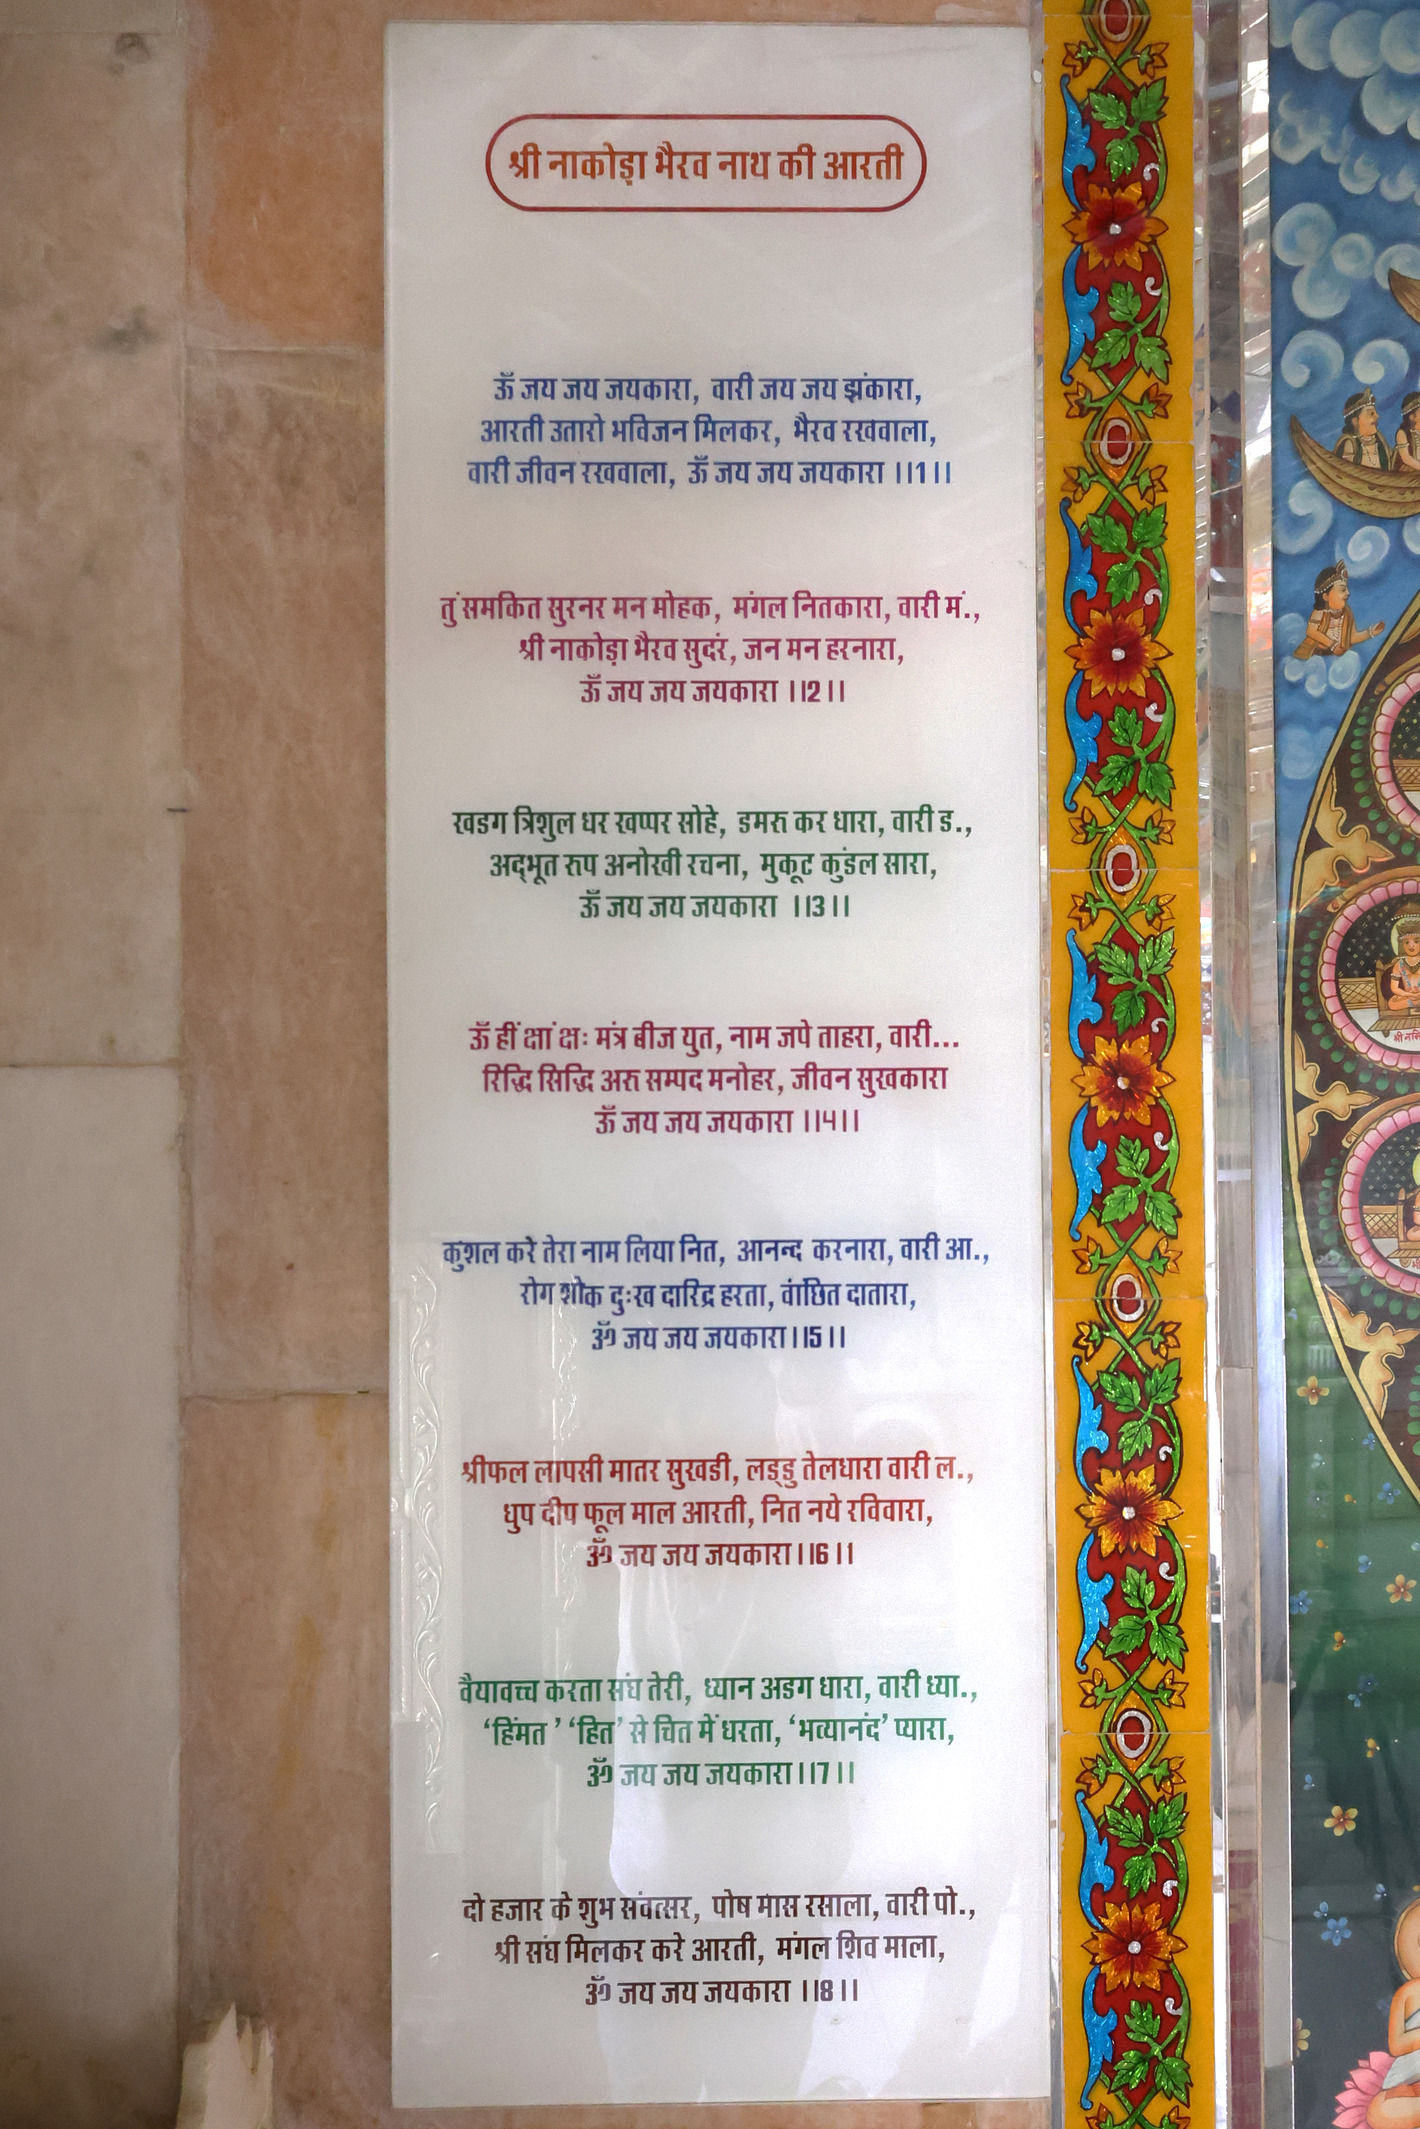 श्री नाकोड़ा भैरव नाथ की आरती
ॐ जय जय जयकारा, वारी जय जय झंकारा,
आरती उतारो भविजन मिलकर, भैरव रखवाला,
वारी जीवन रखवाला, ॐ जय जय जयकारा ।।1।।
तुं समकित सुरनर मन मोहक, मंगल नितकारा, वारी मं.,
श्री नाकोड़ा भैरव सुदंर, जन मन हरनारा,
ॐ जय जय जयकारा ।।2।।
खडग त्रिशुल धर खप्पर सोहे, डमरू कर धारा, वारी ड.,
अद्भूत रूप अनोखी रचना, मुकूट कुंडल सारा,
ॐ जय जय जयकारा ।।3।।
ॐ हीं क्षां क्षः मंत्र बीज युत, नाम जपे ताहरा, वारी...
रिद्धि सिद्धि अरू सम्पद मनोहर, जीवन सुखकारा
ॐ जय जय जयकारा ।।4।।
कुशल करे तेरा नाम लिया नित, आनन्द करनारा, वारी आ.,
रोग शोक दुःख दारिद्र हरता, वांछित दातारा,
ॐ जय जय जयकारा।।5।।
श्रीफल लापसी मातर सुखडी, लड्डु तेलधारा वारी ल.,
धुप दीप फूल माल आरती, नित नये रविवारा,
ॐ जय जय जयकारा।।6।।
वैयावच्च करता संघ तेरी, ध्यान अडग धारा, वारी ध्या.,
‘हिंमत ’ ‘हित’ से चित में धरता, ‘भव्यानंद’ प्यारा,
ॐ जय जय जयकारा।।7।।
दो हजार के शुभ संवत्सर, पोष मास रसाला, वारी पो.,
श्री संघ मिलकर करे आरती, मंगल शिव माला,
ॐ जय जय जयकारा ।।8।।